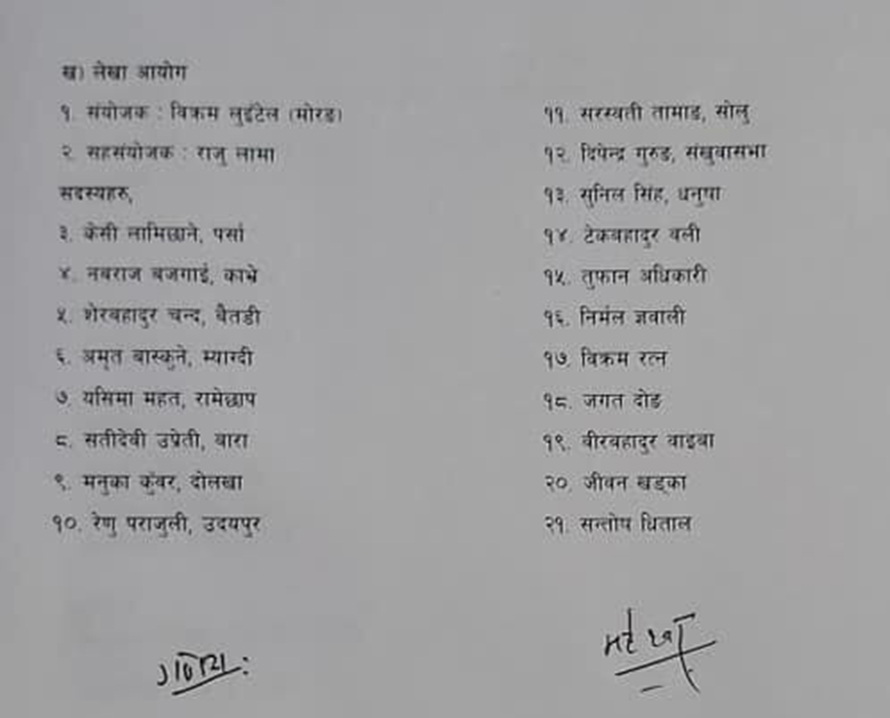 ख) लेखा आयोग
१. संयोजक : विक्रम लुइँटेल (मोरङ)
२. सहसंयोजक : राजु लामा
सदस्यहरु,
३. केसी लामिछाने, पर्सा
४. नवराज बजगाई, काभ्रे
५. शेरबहादुर चन्द, बैतडी
६. अमृत बास्कुने, म्याग्दी
७. यसिमा महत, रामेछाप
८. सतीदेवी उप्रेती, बारा
९. मनुका कुंवर, दोलखा
१०. रेणु पराजुली, उदयपुर
११. सरस्वती तामाङ, सोलु
१२. दिपेन्द्र गुरुङ, संखुवासभा
१३. सुनिल सिंह, धनुषा
१४. टेकबहादुर वली
१५. तुफान अधिकारी
१६. निर्मल ज्ञवाली
१७. विक्रम रत्न
१८. जगत दोङ
१९. वीरबहादुर वाइबा
२०. जीवन खड्का
२१. सन्तोष धिताल